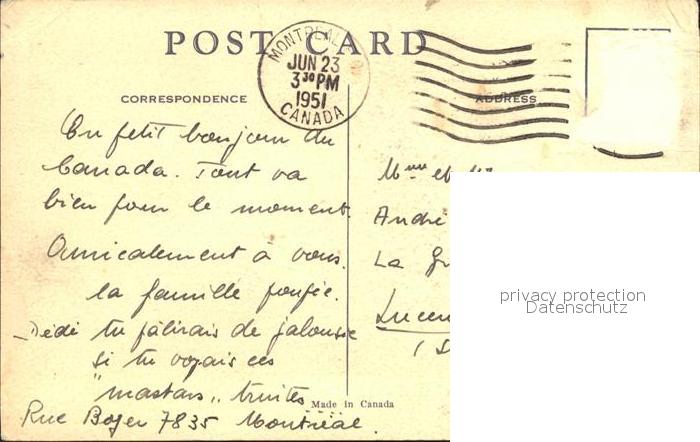 POST CARD
MONTREAL
JUN 23
3 30 PM
1951
CANADA
CORRESPONDENCE
ADDRESS
Un petit bonjour du
Canada. Tout va
bien pour le moment.
Amicalement à vous.
la famille
Dédé tu pâlirais de jalousie
si tu voyais ces
"mastars" truites
Rue Boyer 7835 Montréal.
Made in Canada
Mme et
André
La
privacy protection
Datenschutz